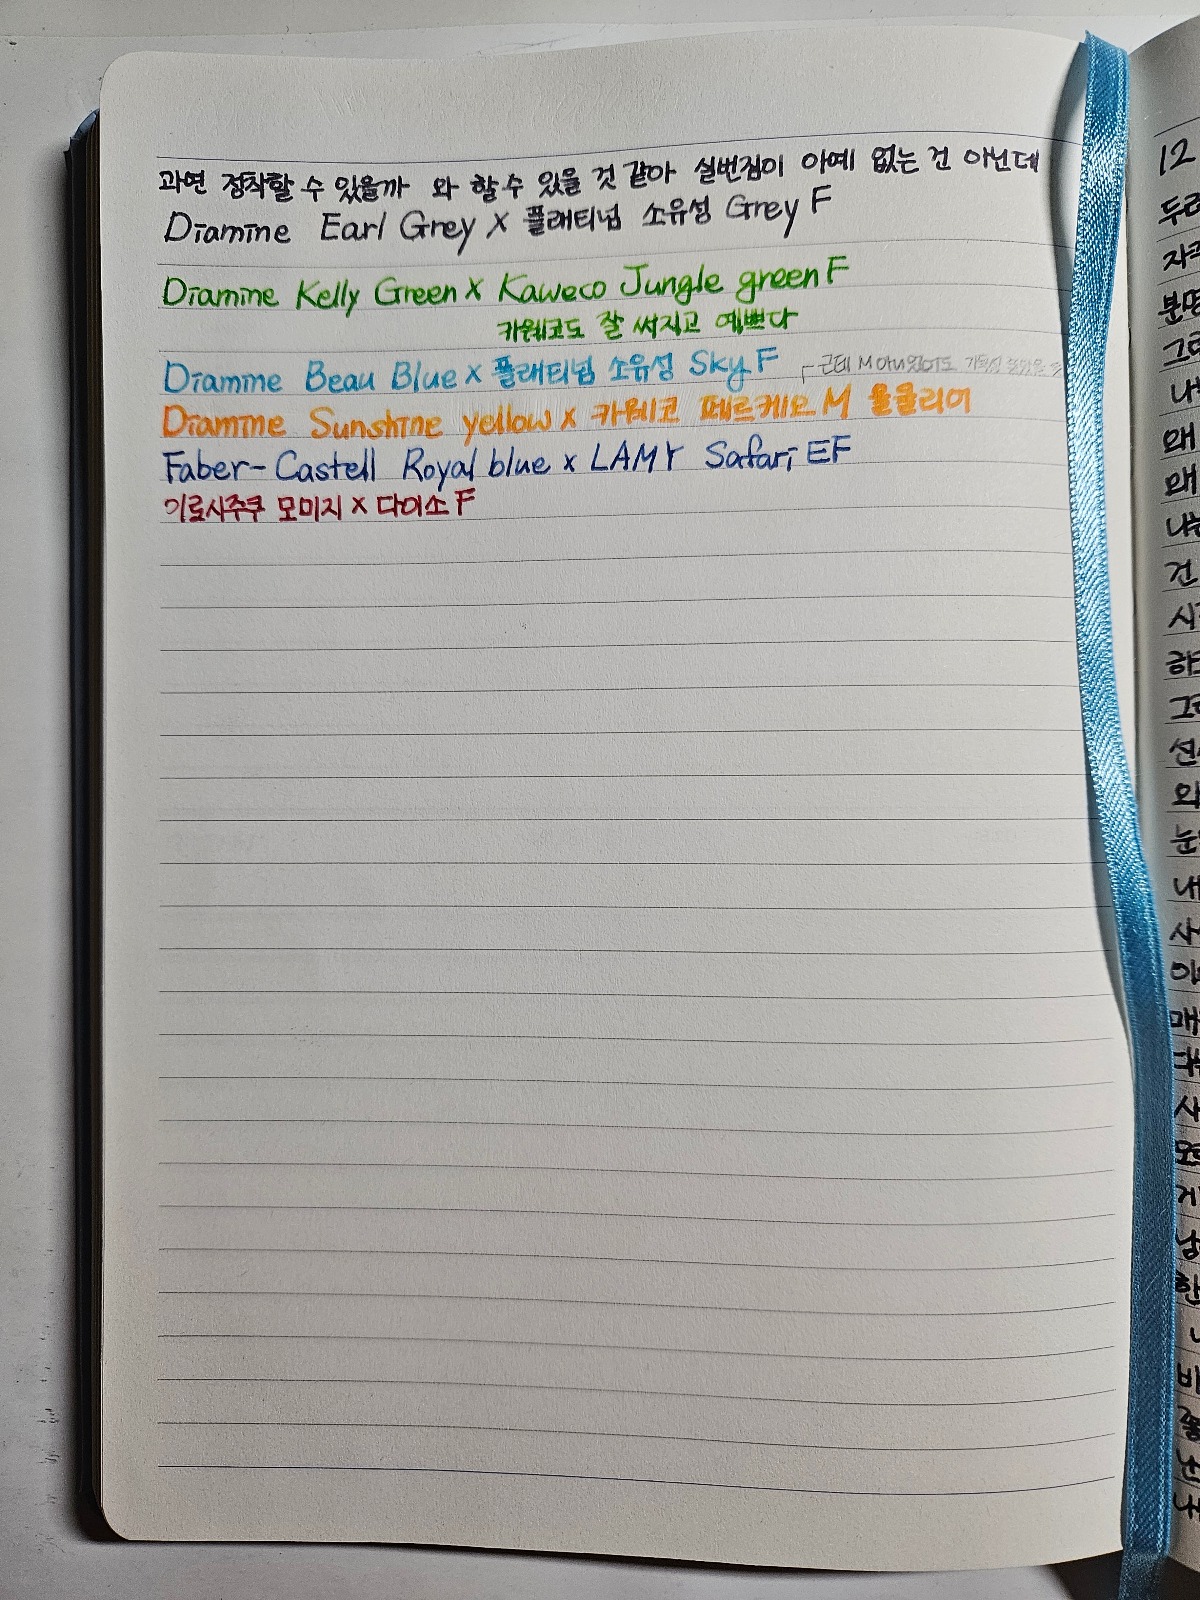 과연 정착할 수 있을까 와 할 수 있을 것 같아 실번짐이 아예 없는 건 아닌데
Diamine Earl Grey X 플래티넘 소유성 Grey F
Diamine Kelly Green X Kaweco Jungle green F
카웨코도 잘 써지고 예쁘다
Diamine Beau Blue X 플래티넘 소유성 Sky F
근데 M
Diamine Sunshine yellow X 카웨코 페르케오 M 올클리어
Faber-Castell Royal blue x LAMY Safari EF
이로시주쿠 모미지 X 다이소 F
12
두
분명
나
왜
왜
나는
건
시
그
선
와
눈
내
사
매
사
게
한
비